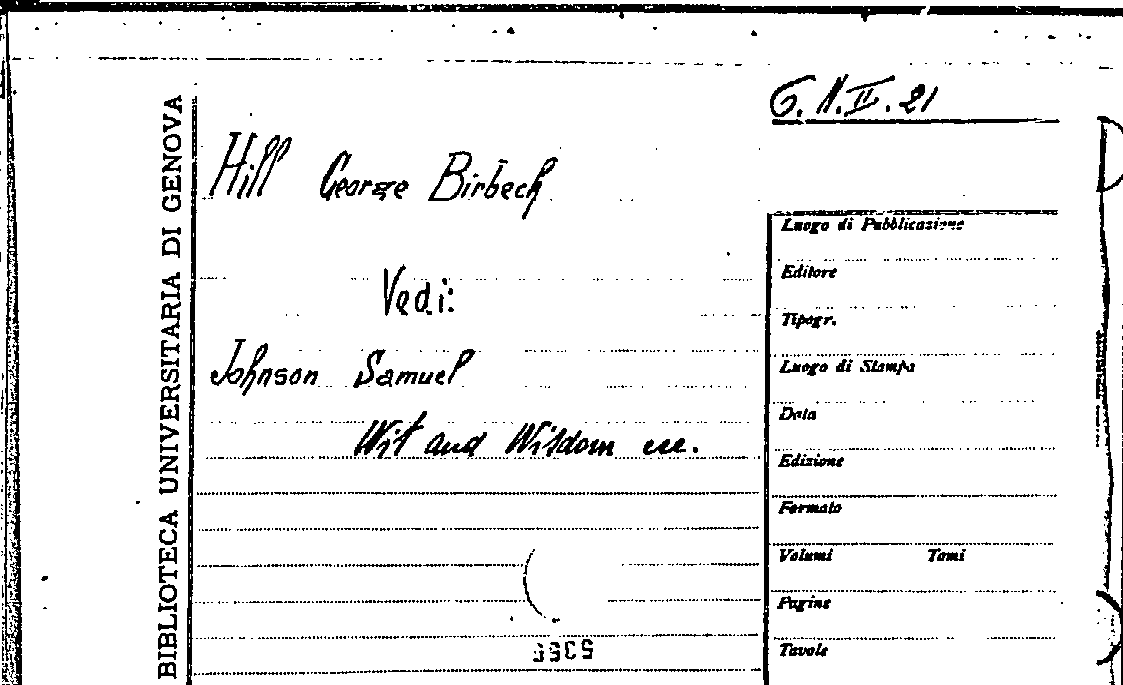 BIBLIOTECA UNIVERSITARIA DI GENOVA
G. N. II. 21
Hill George Birbeck
Vedi:
Johnson Samuel
Wit and Wisdom ecc.
Luogo di Pubblicazione
Editore
Tipogr.
Luogo di Stampa
Data
Edizione
Formato
Volumi Tomi
Pagine
Tavole